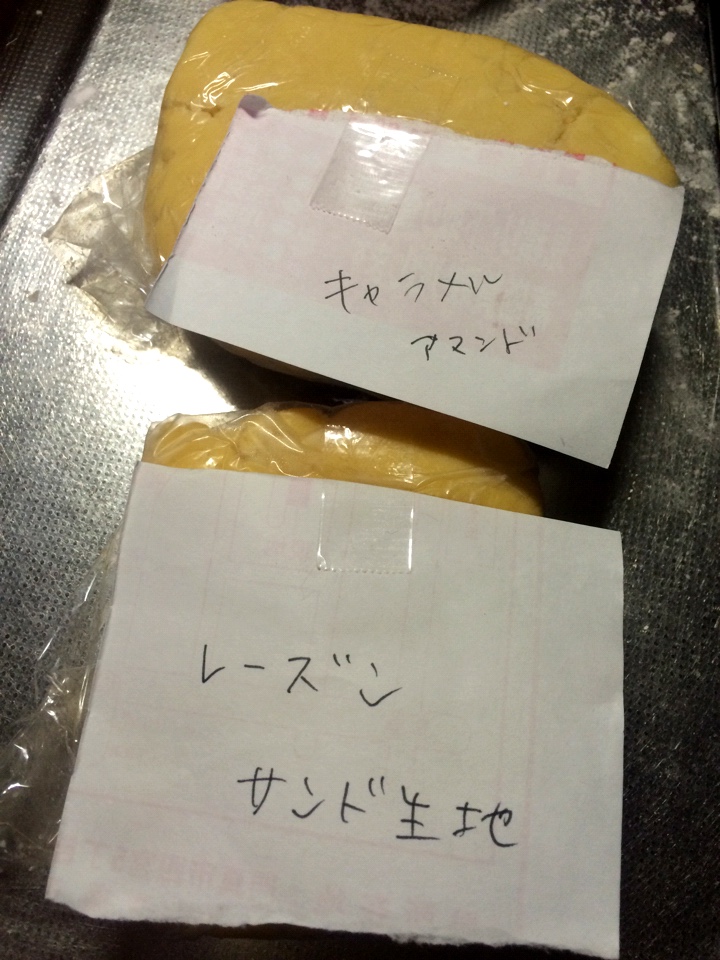 キャラメル
アマンド
レーズン
サンド生地